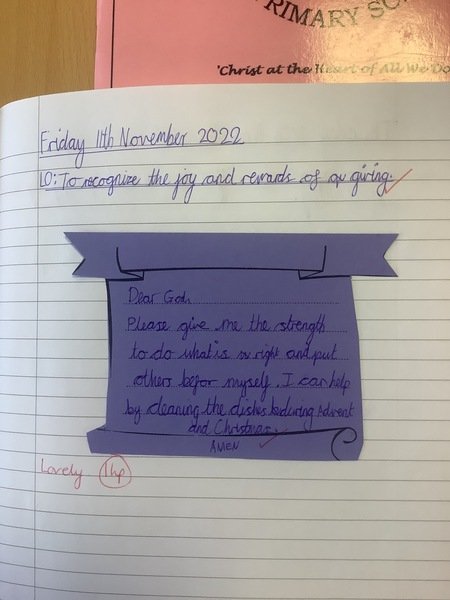 PRIMARY SC
'Christ at the Heart of All We Do
Friday 11th November 2022
LO: To recognize the joy and rewards of giving.
Dear God,
Please give me the strength
to do what is right and put
others befor myself. I can help
by cleaning the dishes during Advent
and Christmas.
AMEN
Lovely 1hp